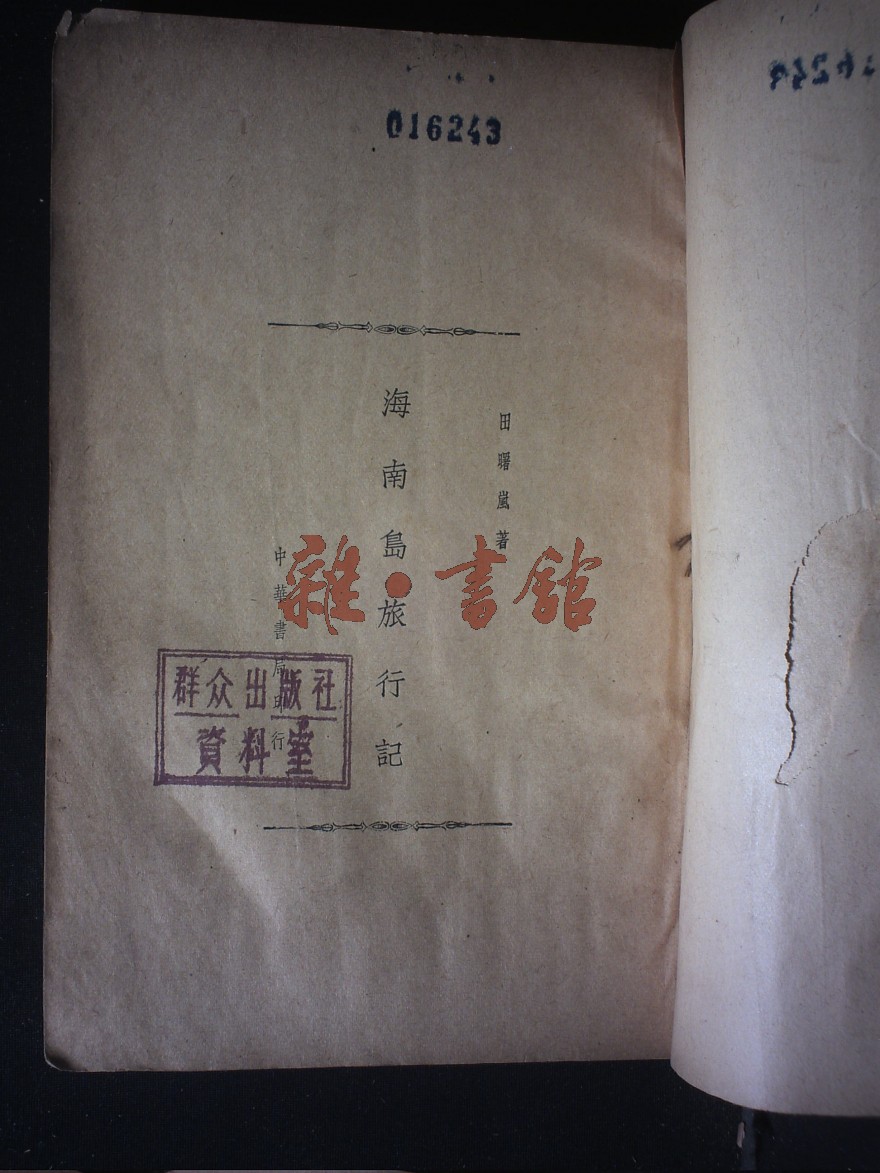 016243
田曙嵐著
海南島旅行記
中華書局印行
雜·書館
群众出版社
資料室